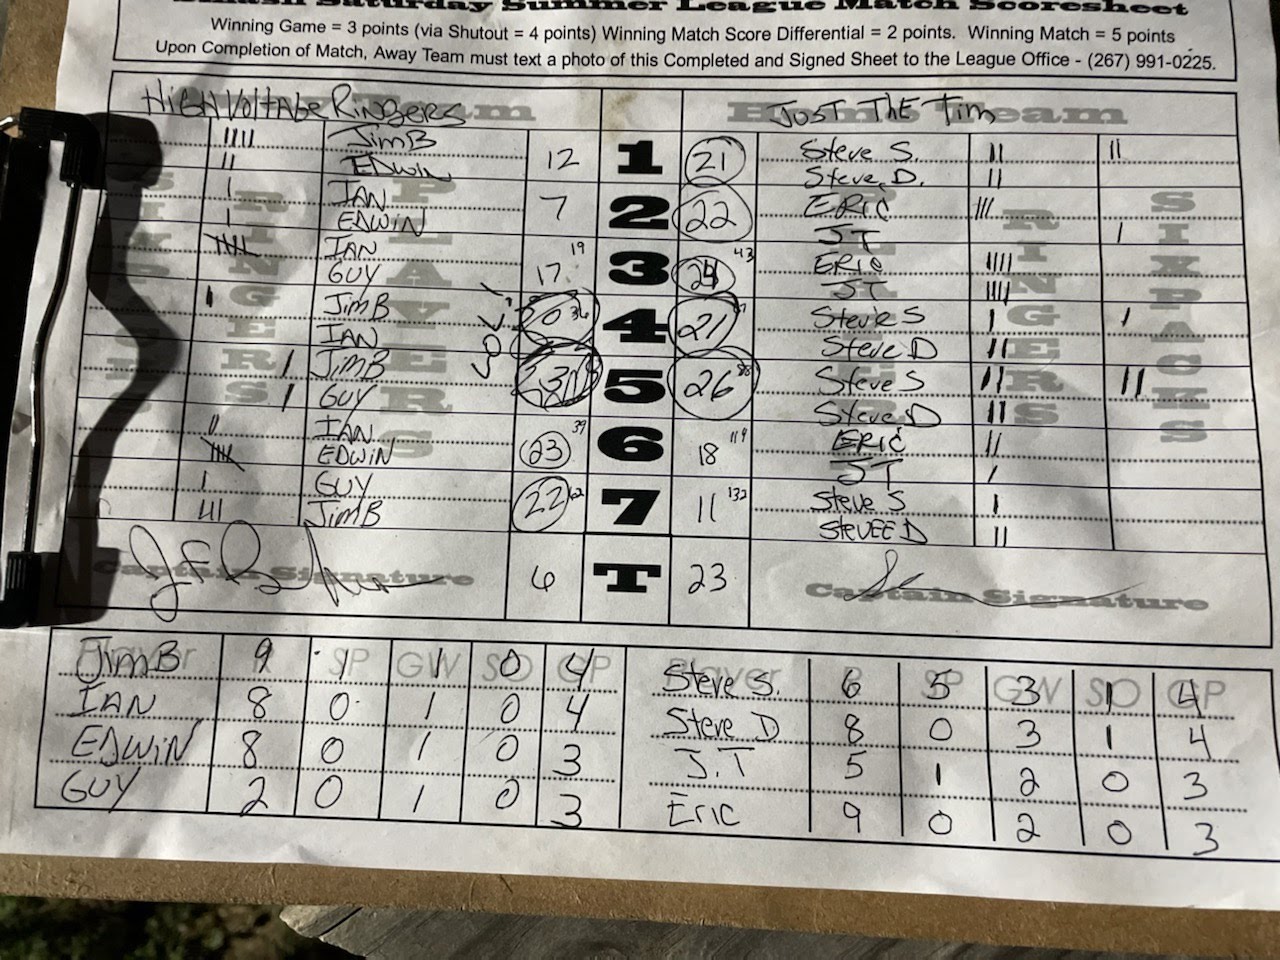 Smash Saturday Summer League Match Scoresheet
Winning Game = 3 points (via Shutout = 4 points) Winning Match Score Differential = 2 points. Winning Match = 5 points
Upon Completion of Match, Away Team must text a photo of this Completed and Signed Sheet to the League Office - (267) 991-0225.
High Voltage Ringers Just The Tim
JimB 12 1 21 Steve S. || ||
EDWIN Steve. D. ||
IAN 7 2 22 ERIC |||
EDWIN JT |
IAN 19 17 3 24 43 ERIC ||||
GUY JT
JimB 0 36 4 21 Steve S | |
IAN Steve D ||
JimB 5 26 88 Steve S || ||
GUY Steve D ||
IAN 39 23 6 18 114 ERIC ||
EDWIN JT |
GUY 22 62 7 11 132 Steve S |
JimB STEVEE D ||
Captain Signature 6 T 23 Captain Signature
Player R SP GW SO GP Player R SP GW SO GP
JimB 9 1 1 0 4 Steve S. 6 5 3 1 4
IAN 8 0 1 0 4 Steve D 8 0 3 1 4
EDWIN 8 0 1 0 3 J.T 5 1 2 0 3
GUY 2 0 1 0 3 Eric 9 0 2 0 3